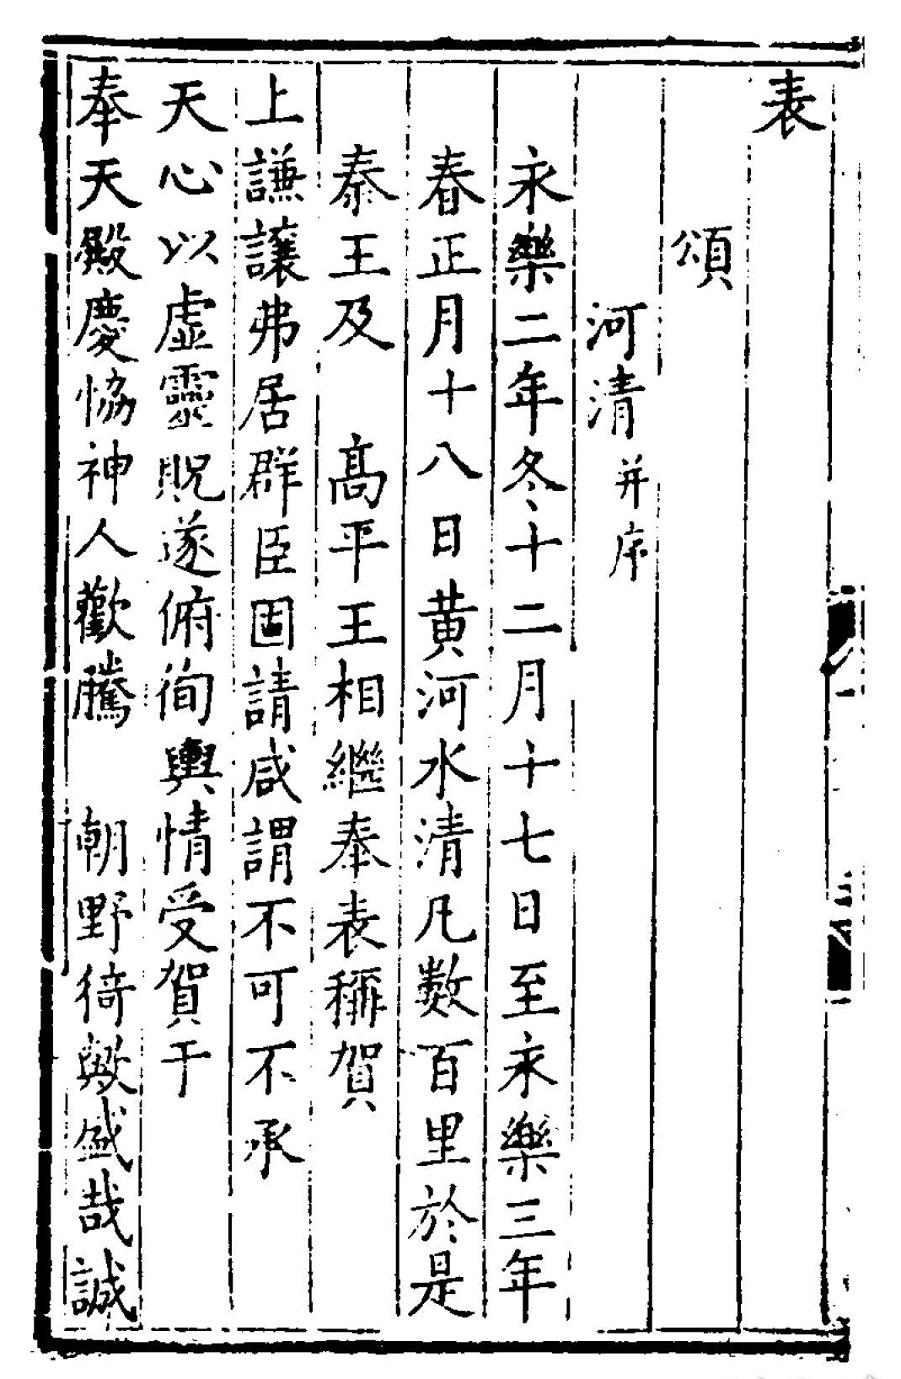 表
頌
河清并序
永樂二年冬十二月十七日至永樂三年
春正月十八日黄河水清凡數百里於是
秦王及　高平王相繼奉表稱賀
上謙讓弗居群臣固請咸謂不可不承
天心以虛靈貺遂俯徇輿情受賀于
奉天殿慶恊神人歡騰　朝野猗歟盛哉誠